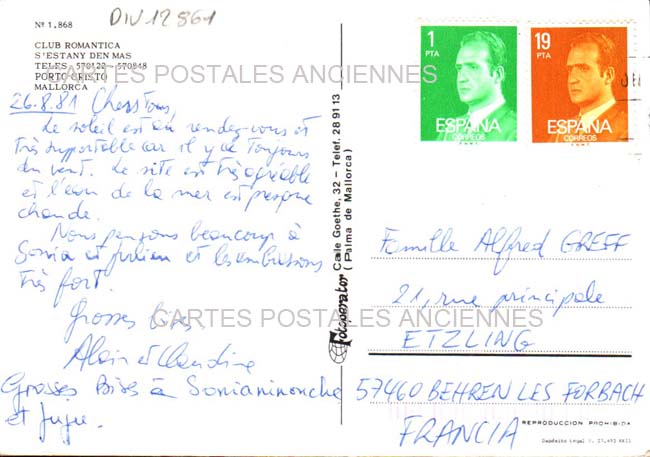 DIV 12861
Nº 1.868
CLUB ROMANTICA
S'ESTANY DEN MAS
TELES. 570122 - 570848
PORTO CRISTO
MALLORCA
CARTES POSTALES ANCIENNES
26.8.81 Chers tous
Le soleil est au rendez-vous et
très supportable car il y a toujours
du vent. Le site est très agréable
et l'eau de la mer est presque
chaude.
Nous pensons beaucoup à
Sonia et Julien et les embrassons
très fort.
Grosses bises
Alain et Claudine
Grosses Bises à Sonianinouche
et Juju.
Fotoperator Calle Goethe, 32 - Telef. 28 91 13
(Palma de Mallorca)
1
PTA
ESPAÑA
CORREOS
19
PTA
ESPAÑA
CORREOS
Famille Alfred GREFF
21, rue principale
CARTES POSTALES ANCIENNES
ETZLING
57460 BEHREN LES FORBACH
FRANCIA
REPRODUCCION PROHIBIDA
Depósito Legal